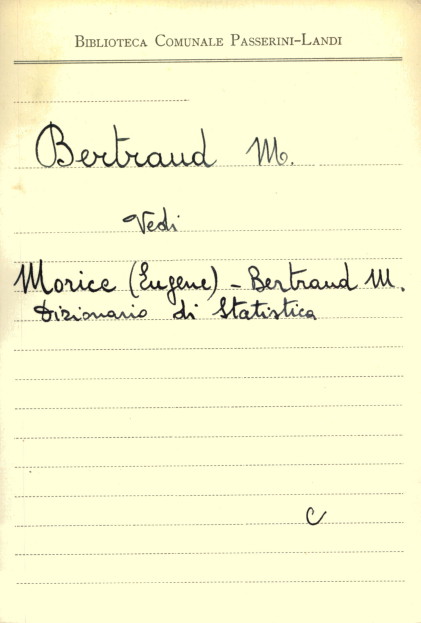 Biblioteca Comunale Passerini-Landi
Bertraud M.
Vedi
Morice (Eugene) - Bertraud M.
Dizionario di Statistica
C